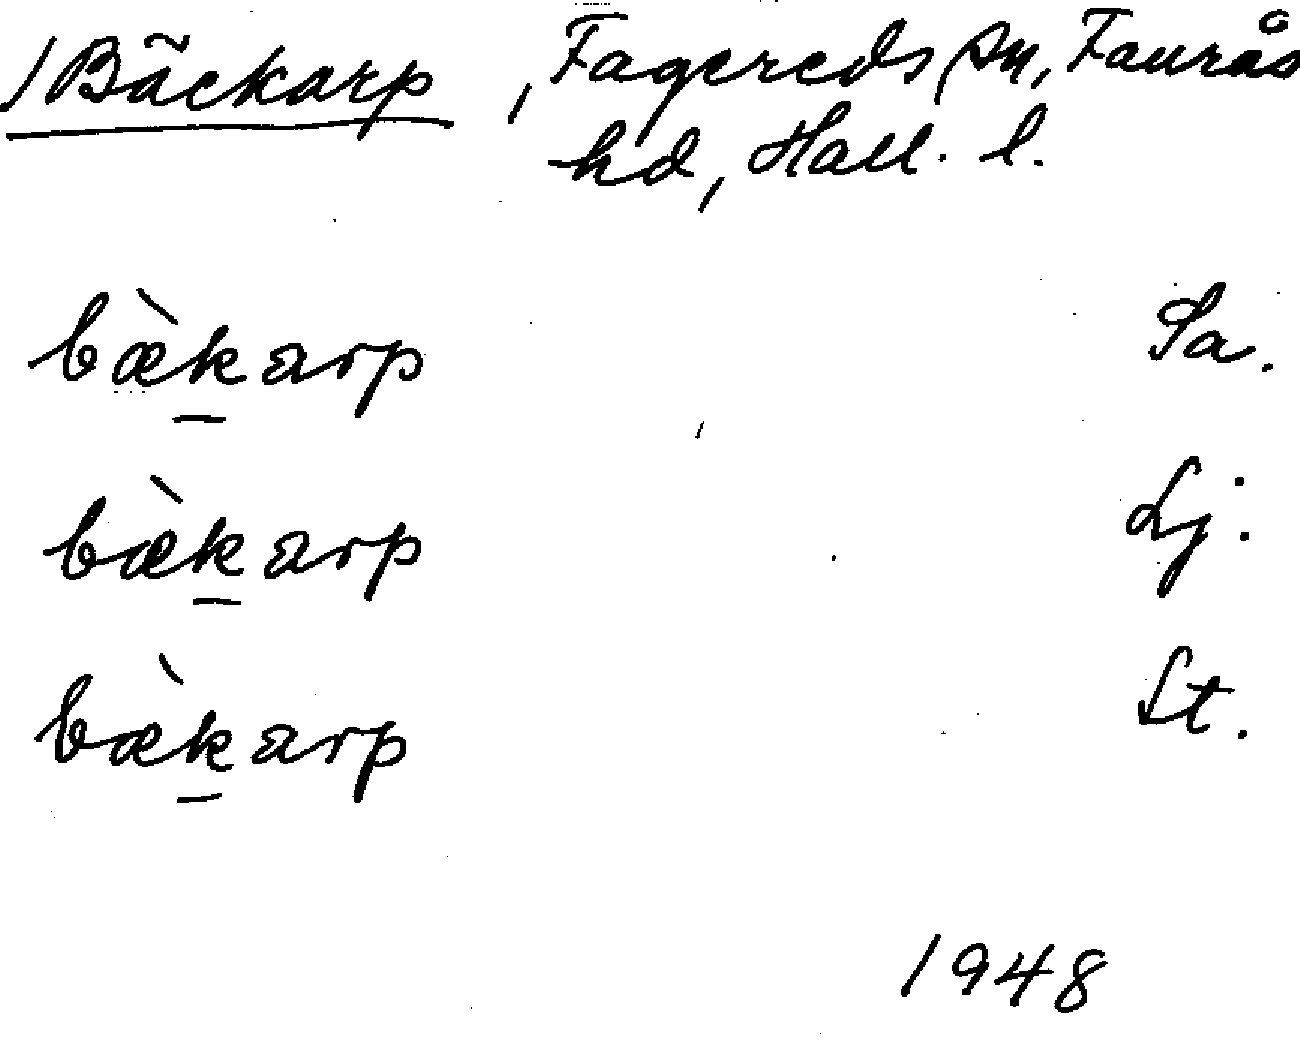 /Bäckarp, Fagereds sn, Faurås
hd, Hall. l.
bæ̀k̲arp Sa.
bæ̀k̲arp Lj.
bæ̀k̲arp St.
1948